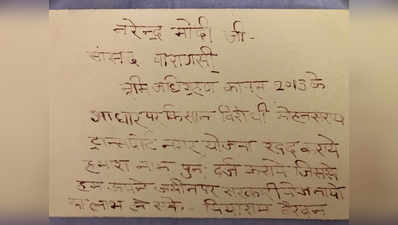 नरेन्द्र मोदी जी-
सांसद वाराणसी
भूमि अधिग्रहण कानून 2013 के
आधार पर किसान विरोधी मोहनसराय
ट्रान्सपोर्ट नगर योजना रद्द कराये
हमारा नाम पुनः दर्ज कराये जिससे
हम अपने जमीन पर सरकारी योजनाओ
का लाभ ले सके - बैरवन